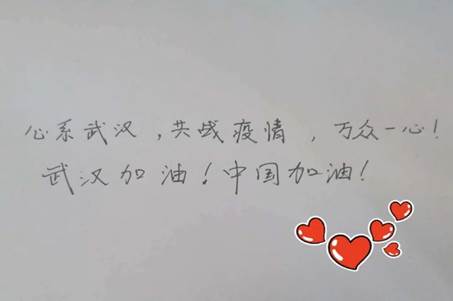 心系武汉，共战疫情，万众一心！
武汉加油！中国加油！